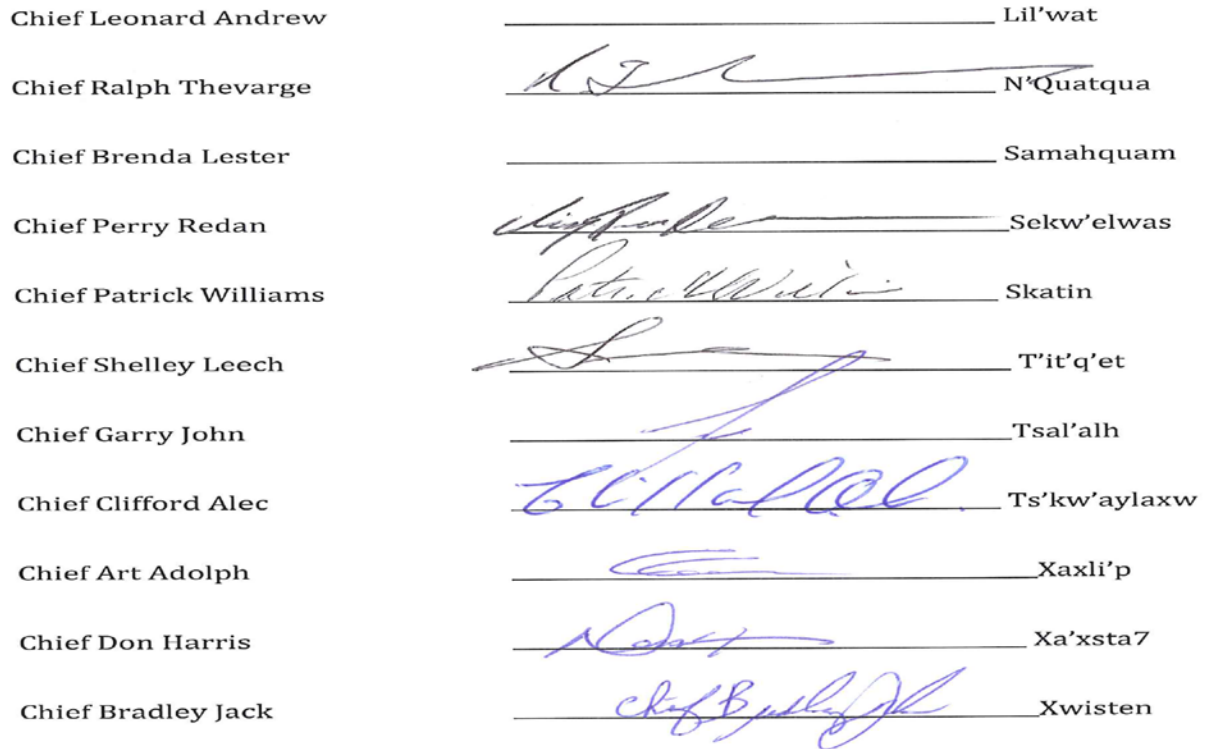 Chief Leonard Andrew Lil'wat
Chief Ralph Thevarge N'Quatqua
Chief Brenda Lester Samahquam
Chief Perry Redan Sekw'elwas
Chief Patrick Williams Skatin
Chief Shelley Leech T'it'q'et
Chief Garry John Tsal'alh
Chief Clifford Alec Ts'kw'aylaxw
Chief Art Adolph Xaxli'p
Chief Don Harris Xa'xsta7
Chief Bradley Jack Chief Bradley Jack Xwisten